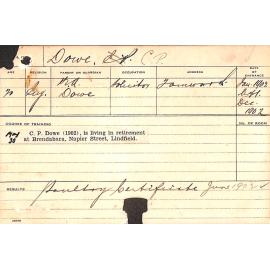 Dowe, C.P.
AGE RELIGION PARENT OR GUARDIAN OCCUPATION ADDRESS DATE OF ENTRANCE
20 P.A. Dowe Solicitor Tamworth Jan. 1902 Left Dec. 1902
COURSE OF TRAINING No. OF ROOM
C. P. Dowe (1902), is living in retirement
at Brendabara, Napier Street, Lindfield.
RESULTS
Poultry Certificate June 1902